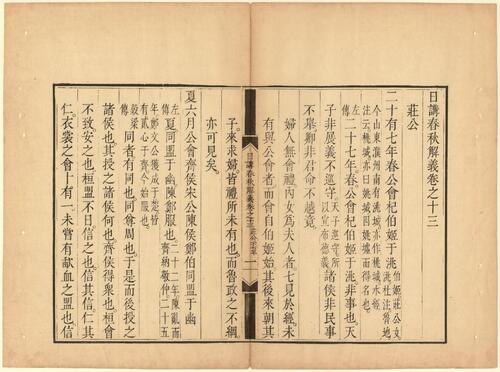 日講春秋解義卷之十三
莊公
二十有七年春公會杞伯姬于洮
伯姬莊公女
洮杜注魯地
左傳
二十七年春公會杞伯姬于洮非事也天
子非展義不巡守
天子巡守所
以宣布德義
諸侯非民事
不舉卿非君命不越竟
婦人無會禮內女為夫人者七見於經未
有與公會者而會自伯姬始其後來朝其
子來求婦皆禮所未有也而魯政之不綱
亦可見矣
日講春秋解義
夏六月公會齊侯宋公陳侯鄭伯同盟于幽
左傳
夏同盟于幽陳鄭服也
二十二年陳亂而
齊納敬仲二十五
年鄭文公獲成于楚皆
有貳心于齊今始服也
穀梁傳
同者有同也同尊周也于是而後授之
諸侯也其授之諸侯何也齊侯得衆也桓會
不致安之也桓盟不日信之也信其信仁其
仁衣裳之會十有一未嘗有歃血之盟也信